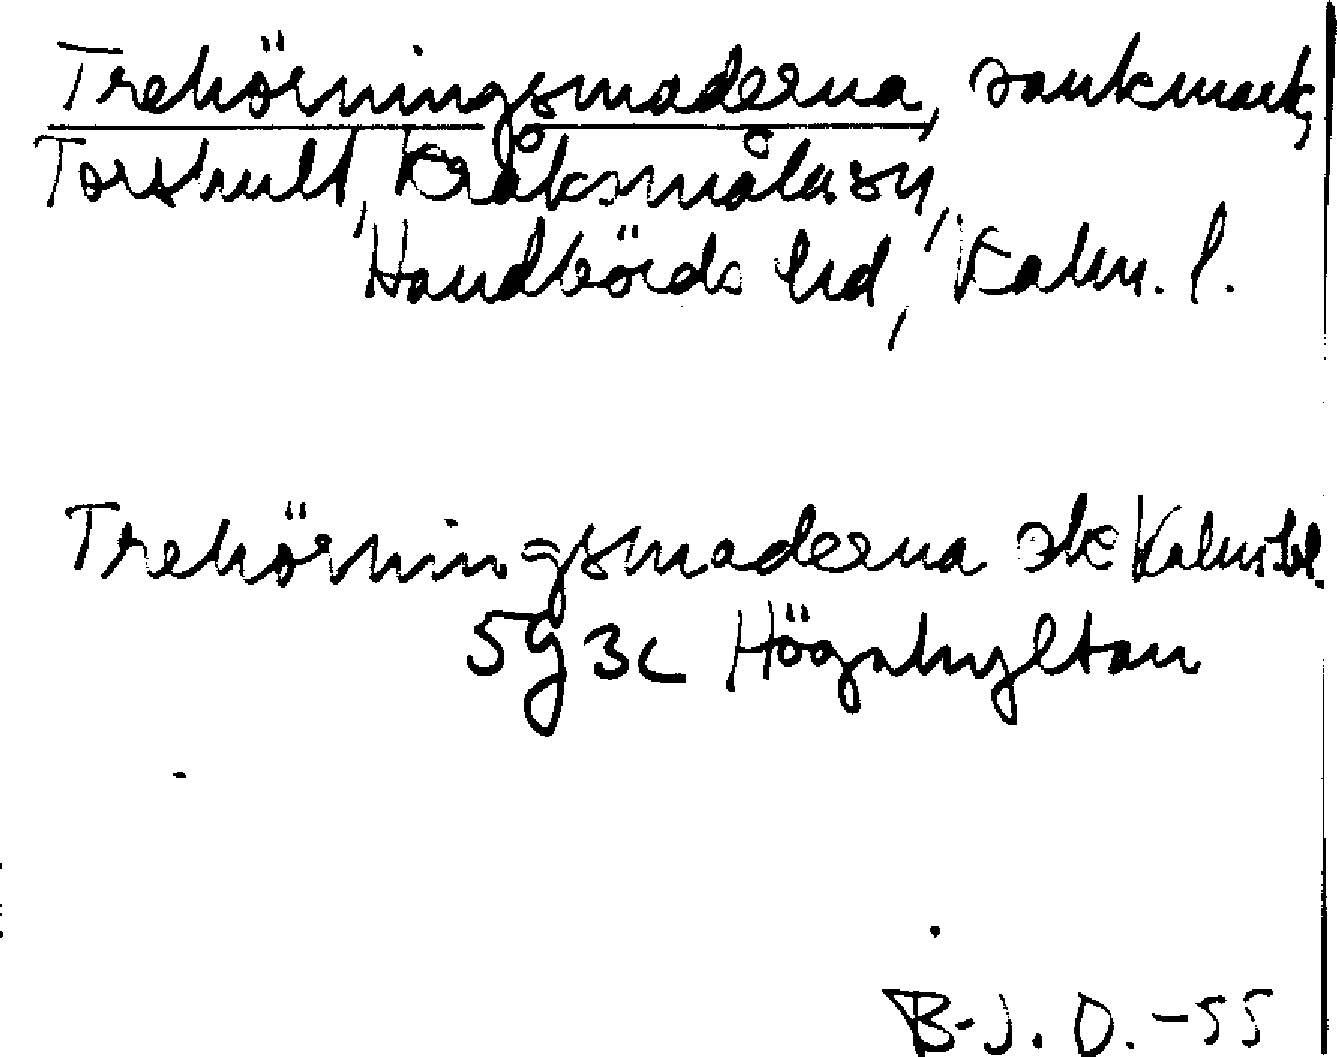 Trehörningsmaderna, sankmark,
Torshult, Kråksmåla sn,
Handbörds hd, Kalm. l.
Trehörningsmaderna ek Kalm. bl.
5g 3c Högahyltan
B-J. O. -55